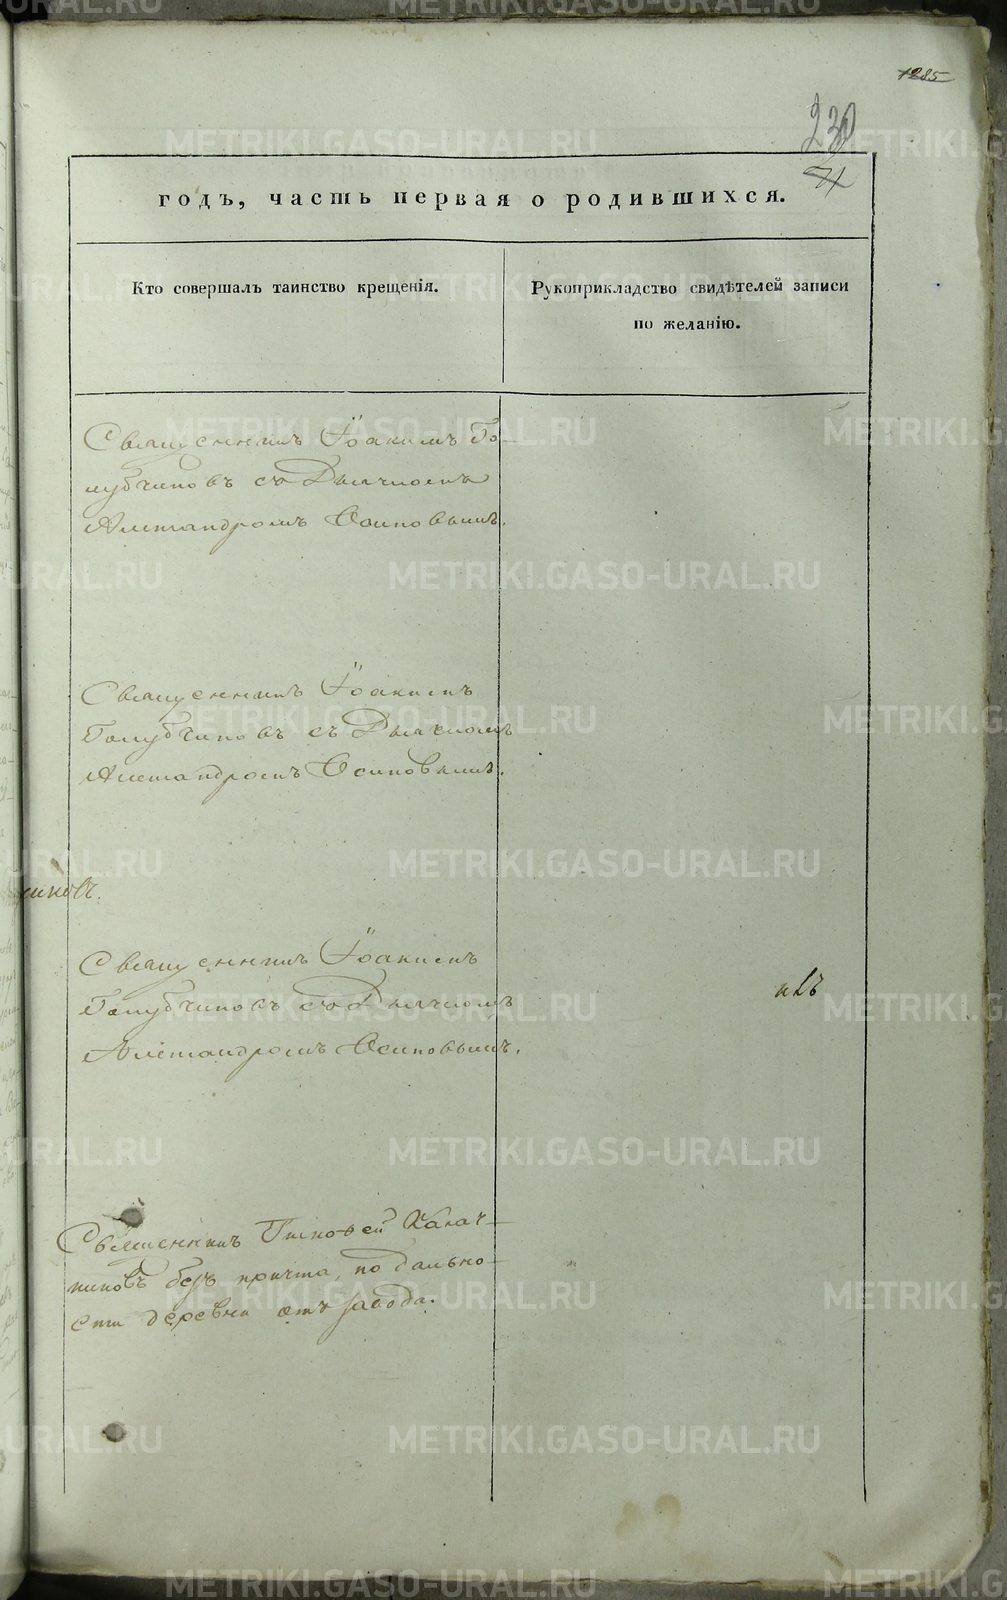 1285
230
годъ, часть первая о родившихся.
Кто совершалъ таинство крещенія.
Рукоприкладство свидѣтелей записи
по желанію.
Священникъ Іоакимъ Го-
лубчиковъ съ Дьячкомъ
Александромъ Осиповымъ.
Священникъ Іоакимъ
Голубчиковъ съ Дьячкомъ
Александромъ Осиповымъ.
Священникъ Іоакимъ
Голубчиковъ съ Дьячкомъ
Александромъ Осиповымъ.
Священникъ
никовъ безъ причта, по дально-
сти деревни отъ завода.
METRIKI.GASO-URAL.RU